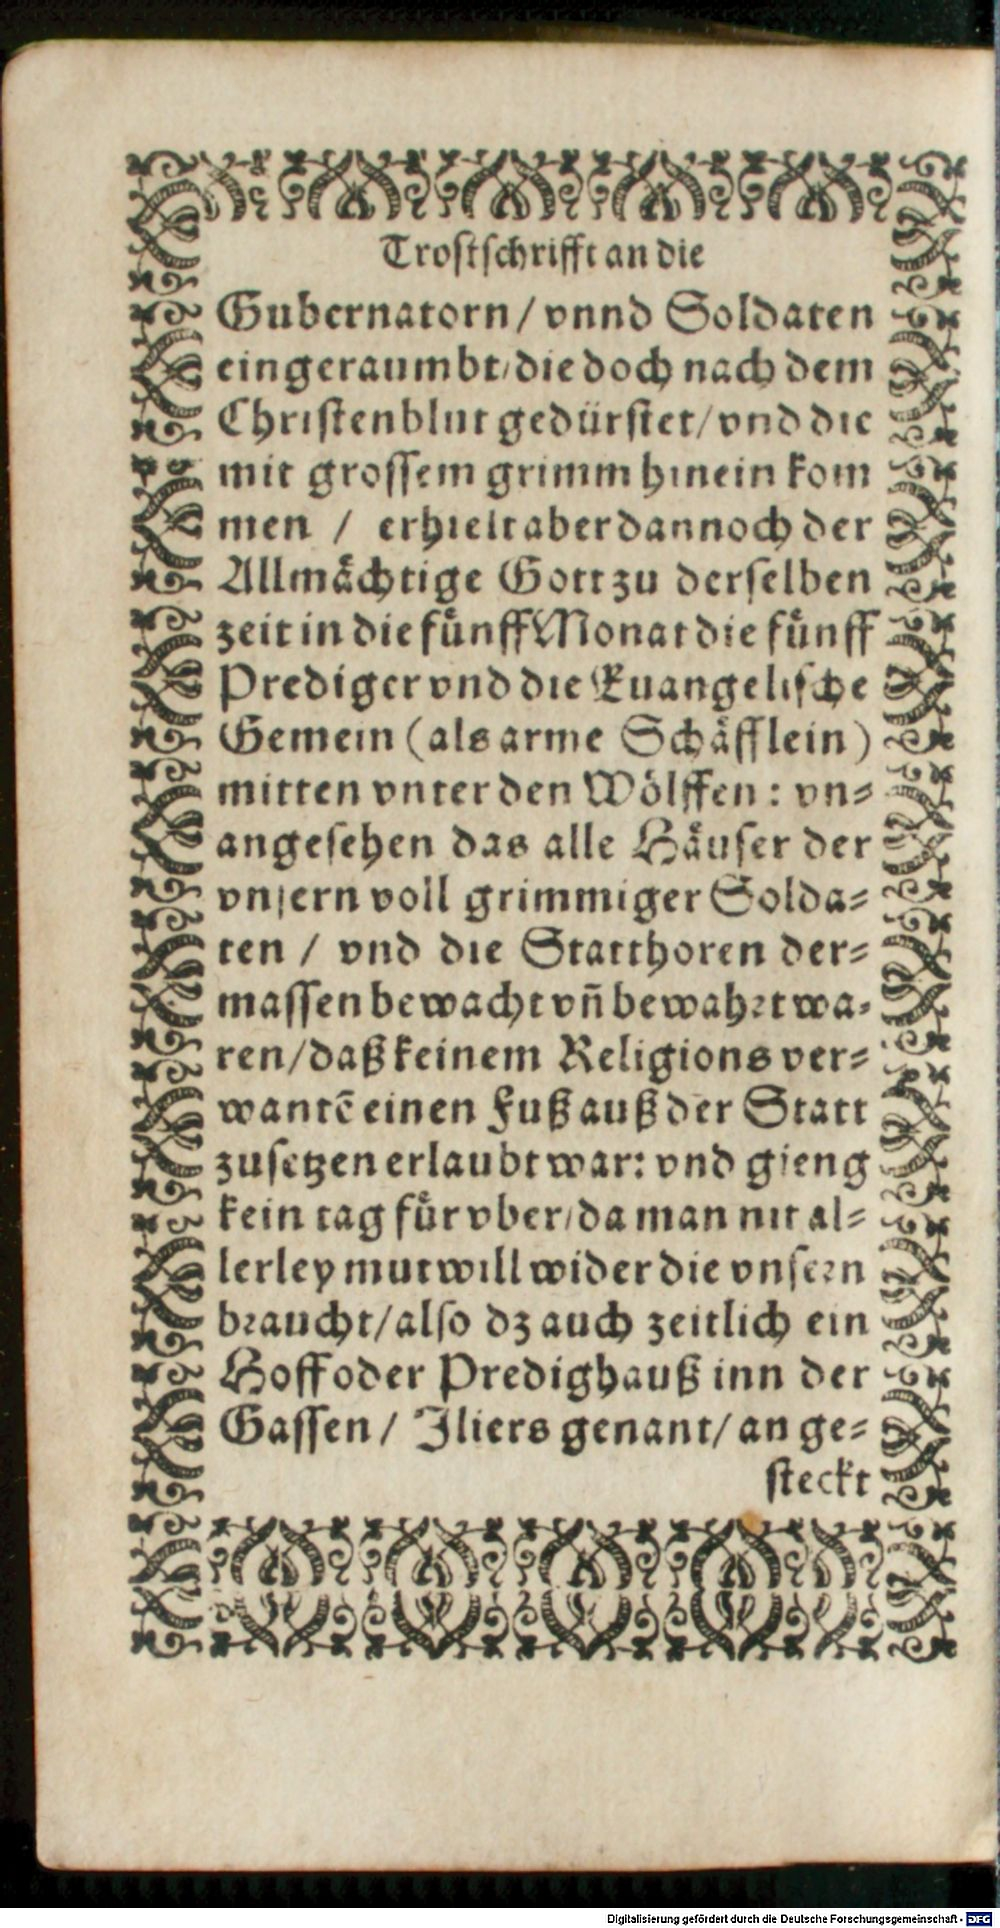 Trostschrifft an die
Gubernatorn / vnnd Soldaten
eingeraumbt / die doch nach dem
Christenblut gedürstet / vnd die
mit grossem grimm hinein kom
men / erhielt aber dannoch der
Allmächtige Gott zu derselben
zeit in die fünff Monat die fünff
Prediger vnd die Euangelische
Gemein (als arme Schäfflein)
mitten vnter den Wölffen : vn⸗
angesehen das alle Häuser der
vnsern voll grimmiger Solda⸗
ten / vnd die Statthoren der⸗
massen bewacht vñ bewahrt wa⸗
ren / daß keinem Religions ver⸗
wantē einen Fuß auß der Statt
zusetzen erlaubt war: vnd gieng
kein tag für vber / da man nit al⸗
lerley mutwill wider die vnsern
braucht / also dz auch zeitlich ein
Hoff oder Predighauß inn der
Gassen / Iliers genant / an ge⸗
steckt
Digitalisierung gefördert durch die Deutsche Forschungsgemeinschaft - DFG